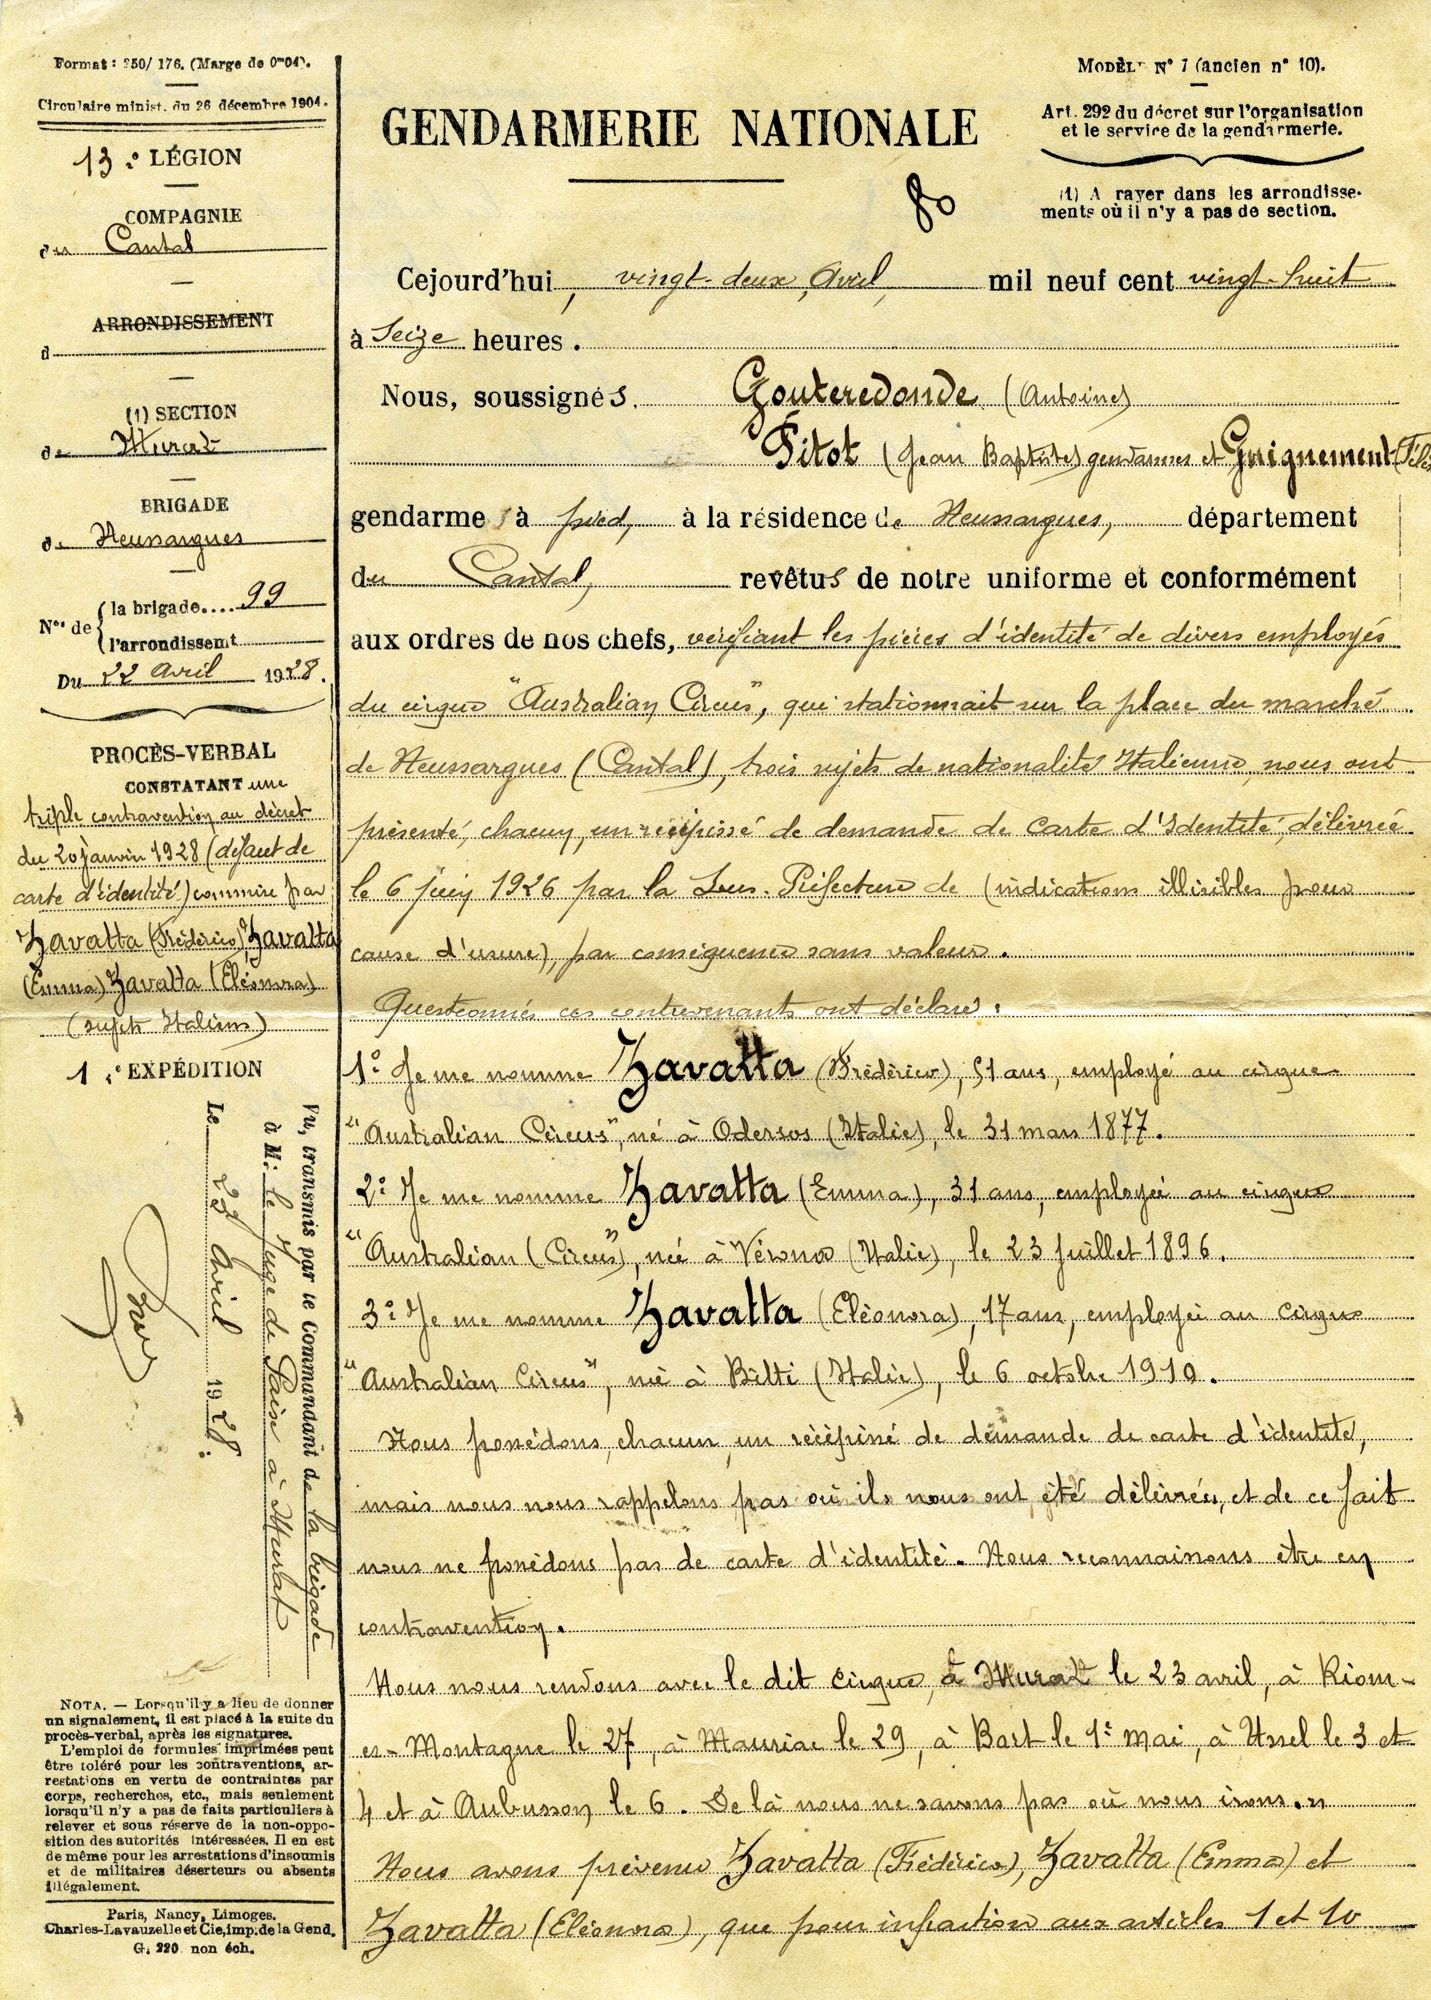 Format : 250/176. (Marge de 0m04).
Circulaire minist. du 26 décembre 1904.
13e LÉGION
COMPAGNIE
du Cantal
ARRONDISSEMENT
d
(1) SECTION
de Murat
BRIGADE
de Neussargues
Nos de
la brigade.... 99
l'arrondissemt
Du 22 Avril 1928.
PROCÈS-VERBAL
CONSTATANT une
triple contravention au décret
du 20 janvier 1928 (défaut de
carte d'identité) commise par
Zavatta (Frédérico), Zavatta
(Emma) Zavatta (Eléonora)
(sujets Italiens)
1e EXPÉDITION
Vu, transmis par le Commandant de la brigade
à M. le Juge de Paix à Murat
Le 23 Avril 1928.
NOTA. — Lorsqu'il y a lieu de donner
un signalement, il est placé à la suite du
procès-verbal, après les signatures.
L'emploi de formules imprimées peut
être toléré pour les contraventions, ar-
restations en vertu de contraintes par
corps, recherches, etc., mais seulement
lorsqu'il n'y a pas de faits particuliers à
relever et sous réserve de la non-oppo-
sition des autorités intéressées. Il en est
de même pour les arrestations d'insoumis
et de militaires déserteurs ou absents
illégalement.
Paris, Nancy, Limoges.
Charles-Lavauzelle et Cie, imp. de la Gend.
G. 220 non éch.
MODÈLE N° 1 (ancien n° 10).
Art. 292 du décret sur l'organisation
et le service de la gendarmerie.
(1) A rayer dans les arrondisse-
ments où il n'y a pas de section.
GENDARMERIE NATIONALE
80
Cejourd'hui, vingt-deux Avril, mil neuf cent vingt-huit
à Seize heures.
Nous, soussignés, Gouteredonde (Antoine)
Pitot (Jean Baptiste) gendarmes et Guignement
gendarmes à pied, à la résidence de Neussargues, département
du Cantal, revêtus de notre uniforme et conformément
aux ordres de nos chefs, vérifiant les pièces d'identité de divers employés
du cirque "Australian Circus", qui stationnait sur la place du marché
de Neussargues (Cantal), trois sujets de nationalité Italienne, nous ont
présenté, chacun, un récépissé de demande de carte d'Identité, délivrée
le 6 juin 1926 par la Sous-Préfecture de (indications illisibles pour
cause d'usure), par conséquence sans valeur.
Questionnés ces contrevenants ont déclaré :
1° Je me nomme Zavatta (Frédérico), 51 ans, employé au cirque
"Australian Circus", né à Odersos (Italie), le 31 mars 1877.
2° Je me nomme Zavatta (Emma), 31 ans, employée au cirque
"Australian (Circus"), née à Vérona (Italie), le 23 Juillet 1896.
3° Je me nomme Zavatta (Eléonora), 17 ans, employée au Cirque
"Australian Circus", née à Bélti (Italie), le 6 octobre 1910.
Nous possédons, chacun, un récépissé de demande de carte d'identité,
mais nous nous rappelons pas où ils nous ont été délivrés, et de ce fait
nous ne possédons pas de carte d'identité. Nous reconnaissons être en
contravention.
Nous nous rendons avec le dit Cirque, à Murat le 23 avril, à Riom-
es-Montagne le 27, à Mauriac le 29, à Bort le 1er Mai, à Ussel le 3 et
4 et à Aubusson, le 6. De là nous ne savons pas où nous irons."
Nous avons prévenu Zavatta (Frédérico), Zavatta (Emma) et
Zavatta (Eléonora), que pour infraction aux articles 1 et 10